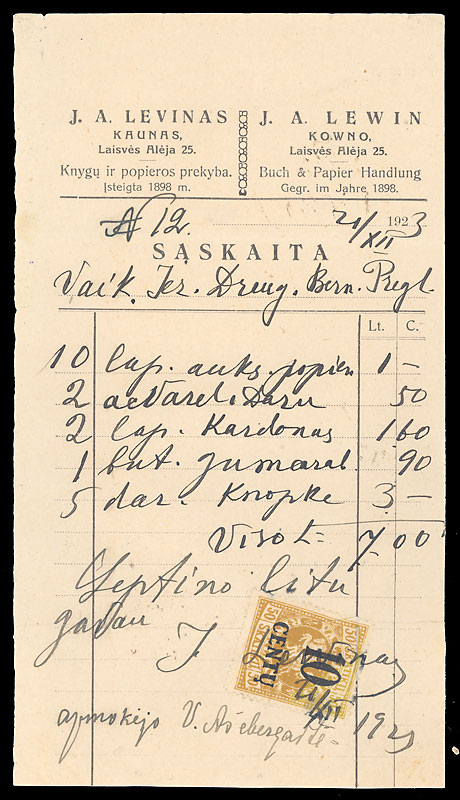 J. A. LEVINAS
KAUNAS,
Laisvės Alėja 25.
Knygų ir popieros prekyba.
Įsteigta 1898 m.
J. A. LEWIN
KOWNO,
Laisvės Alėja 25.
Buch & Papier Handlung
Gegr. im Jahre 1898.
N 12
21/XII 1923
SĄSKAITA
Vaik. Jėz. Draug. Bern. Pregl.
Lt. C.
10 lap. auks. popier 1 —
2 50
2 lap. Kardonas 1 60
1 but. gumarab. 90
5 Knopke 3 —
Viso Lt 7 00
Septino litu
gavau
J. Levinas
10
CENTŲ
50
21/XII 1923
apmokėjo V.